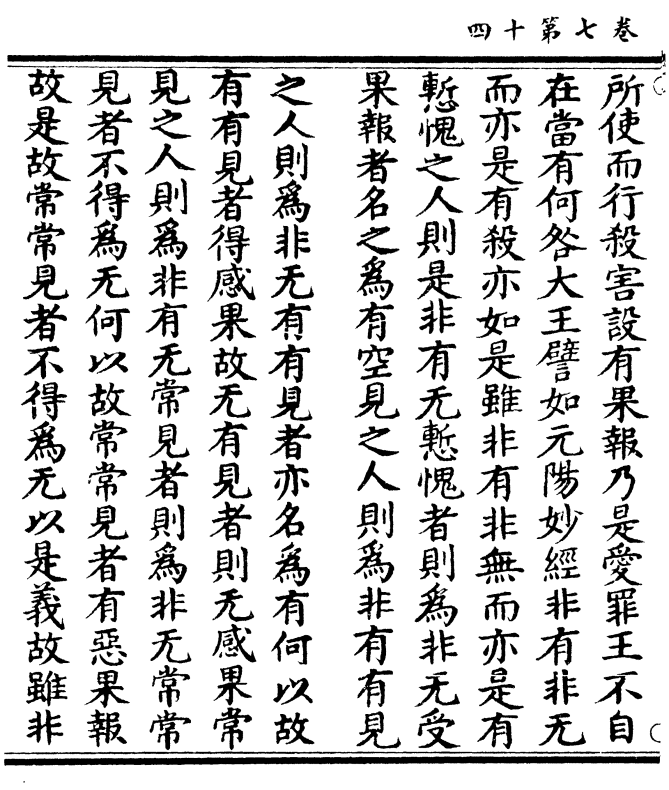 卷七第十四
所使而行殺害設有果報乃是愛罪王不自
在當有何咎大王譬如元陽妙經非有非无
而亦是有殺亦如是雖非有非無而亦是有
慙愧之人則是非有无慙愧者則爲非无受
果報者名之爲有空見之人則爲非有有見
之人則爲非无有有見者亦名爲有何以故
有有見者得感果故无有見者則无感果常
見之人則爲非有无常見者則爲非无常常
見者不得爲无何以故常常見者有惡果報
故是故常常見者不得爲无以是義故雖非